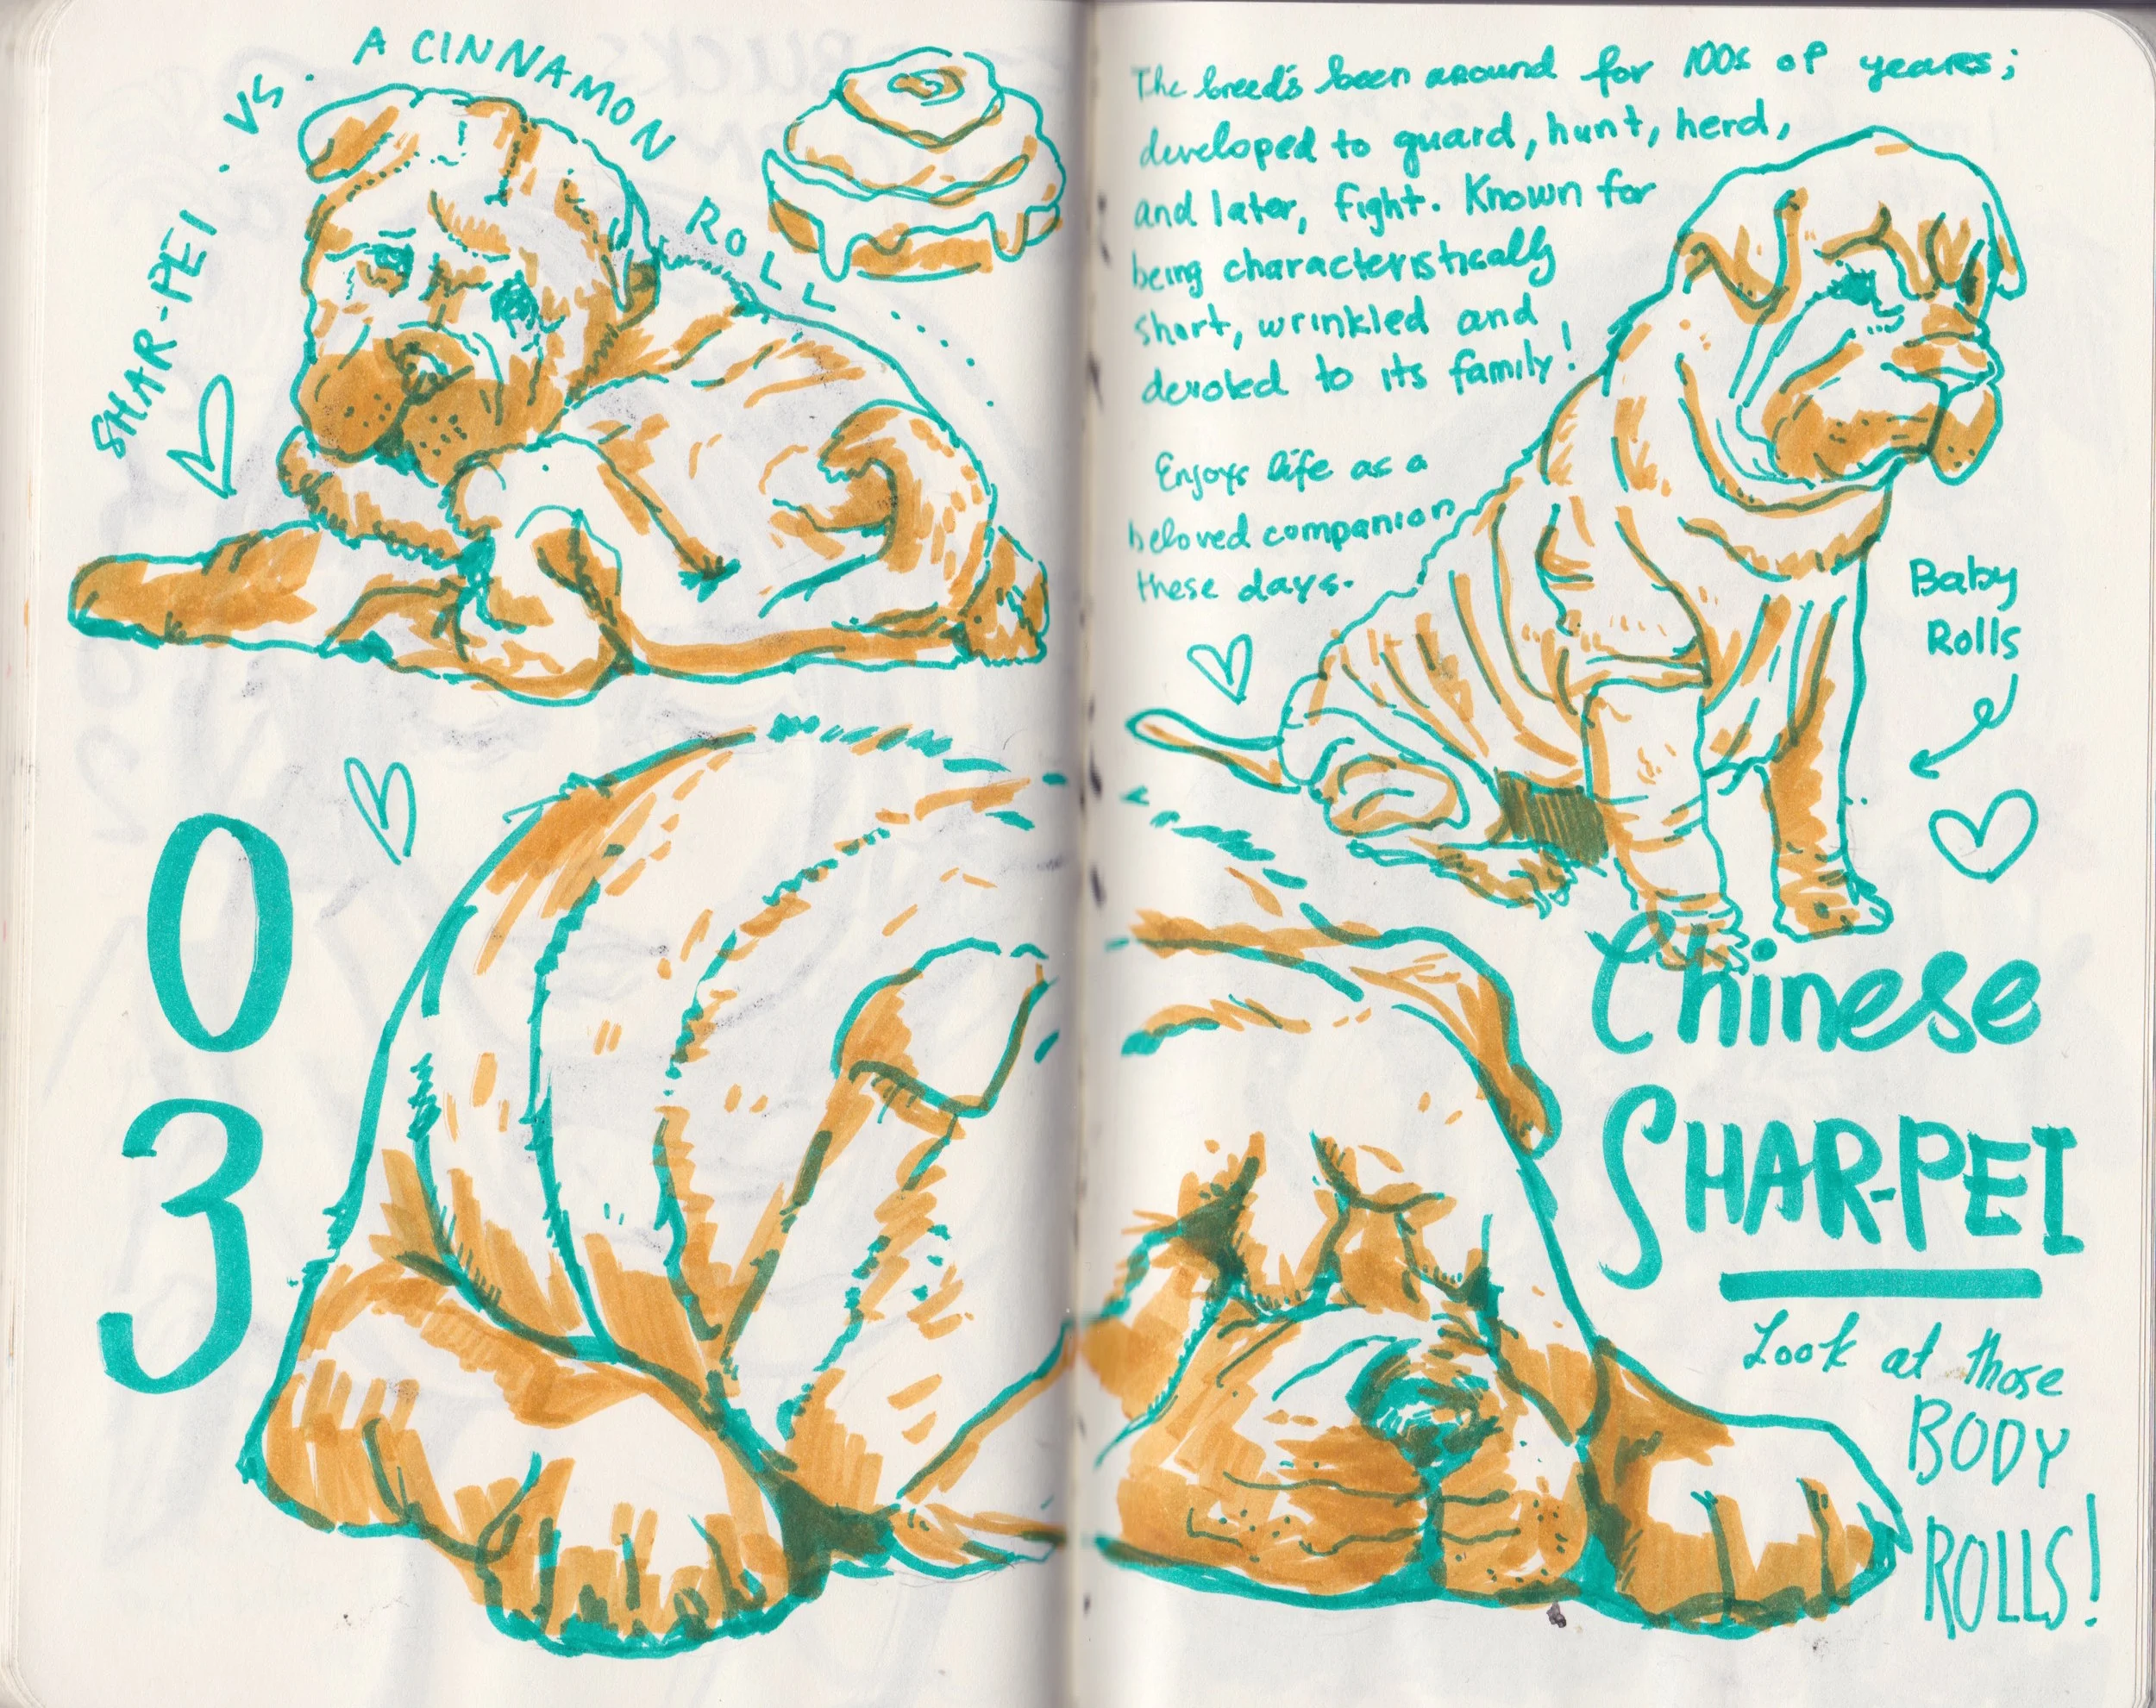 SHAR-PEI . VS . A CINNAMON ROLL ....
03
The breed's been around for 100s of years;
developed to guard, hunt, herd,
and later, fight. Known for
being characteristically
short, wrinkled and
devoted to its family!
Enjoys life as a
beloved companion
these days.
Baby
Rolls
Chinese
SHAR-PEI
Look at those
BODY
ROLLS!